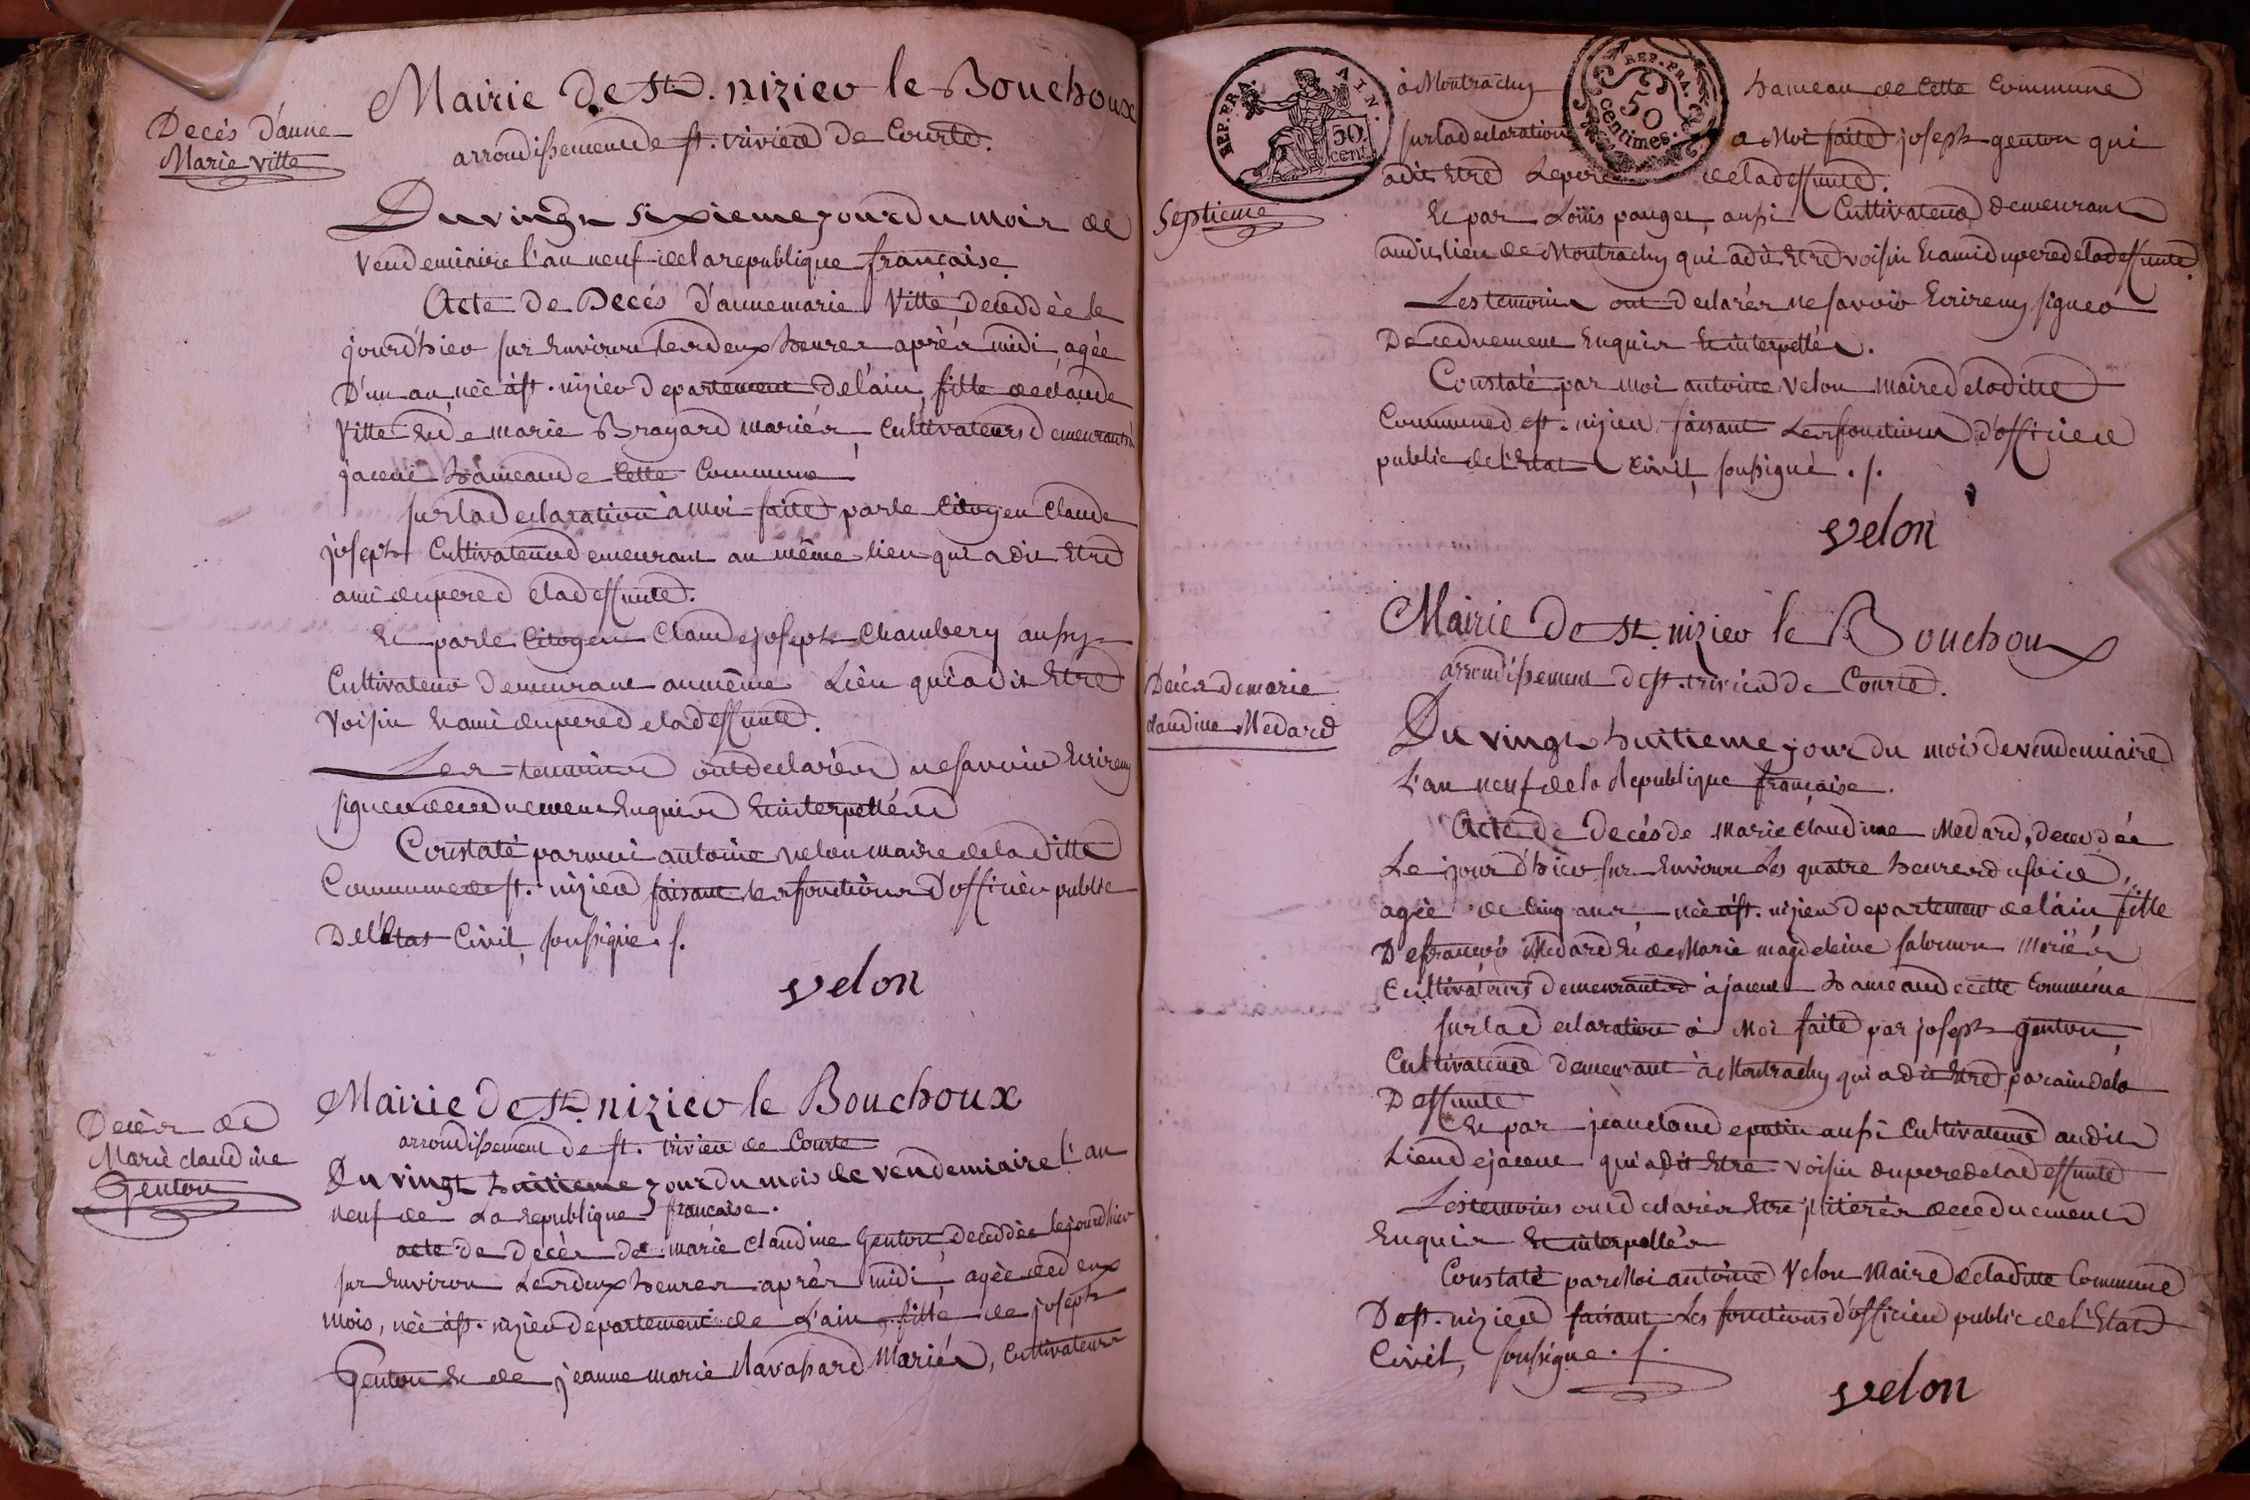 Decés d'anne
Marie vitte
Mairie de St. nizier le Bouchoux
arrondissement de st. trivier de Courte.
Du vingt sixieme jour du mois de
vendemiaire l'an neuf de la republique française
Acte de Decés d'anne marie Vitte decedèe le
jourd'hier sur environ les deux heures après midi, agèe
D'un an, nèe à st. nizier departement de l'ain, fille de claude
vitte et de marie Brayard mariés, cultivateurs demeurants
jacent hameau de cette commune
sur la declaration à moi faite par le citoyen claude
joseph cultivateur demeurant au même lieu qui a dit etre
ami du pere de la deffunte.
Et par le citoyen Claude joseph Chambery aussy
Cultivateur demeurant au même Lieu qui a dit Etre
voisin et ami du pere de la deffunte.
Les temoins ont declarés ne savoir Ecrire ny
signer de ce duement Enquis et interpellés
Constaté par moi antoine velon maire de la ditte
Commune de st. nizier faisant les fonctions d'officier public
De l'Etat Civil, soussigné. s.
velon
Decès de
Marie claudine
Genton
Mairie de St. nizier le Bouchoux
arrondissement de st. trivier de Courte
Du vingt huitieme jour du mois de vendemiaire l'an
neuf de La republique française.
acte de decès de marie claudine Genton, decedèe le jourd'hier
sur environ Les deux heures après midi, agèe de deux
mois, nèe à st. nizier departement de L'ain, fille de joseph
Genton et de jeanne marie Ravassard Mariés, cultivateurs
REP. FRA. AIN.
50 cent.
REP. FRA.
50
centimes.
à Montrachy hameau de cette commune
sur la declaration a Moi faite joseph genton qui
a dit etre Le pere de la deffunte.
Septieme
Et par Loüis pauget, aussi Cultivateur demeurant
audit lieu de Montrachy qui a dit Etre voisin et ami du pere de la deffunte.
Les temoins ont declarés ne savoir Ecrire ny signer
De ce duement Enquis et interpellés.
Constaté par moi antoine velon maire de la dite
Commune de st. nizier, faisant Les fonctions d'officier
public de l'Etat civil, soussigné. s.
velon
Mairie de St. nizier le Bouchoux
arrondissement de st. trivier de Courte.
Decès de marie
claudine Medard
Du vingt huitieme jour du mois de vendemiaire
L'an neuf de la Republique française.
Acte de decés de marie claudine Medard, decedée
Le jour d'hier sur environ Les quatre heures du soir,
agèe de cinq ans nèe à st. nizier departement de l'ain fille
De francois Medard et de Marie magdeleine salomon Mariés
Cultivateurs demeurants à jacent hameau de cette commune
sur la declaration à Moi faite par joseph genton
Cultivateur demeurant à Montrachy qui a dit Etre parain de la
Deffunte
Et par jean claude putin aussi cultivateur audit
Lieu de jacent qui a dit Etre voisin du pere de la deffunte
Les temoins ont declarés Etre illiterés de ce duement
Enquis Et interpellés
Constaté par Moi antoine Velon Maire de la dite Commune
De st. nizier faisant Les fonctions d'officier public de l'Etat
Civil, soussigné. s.
velon